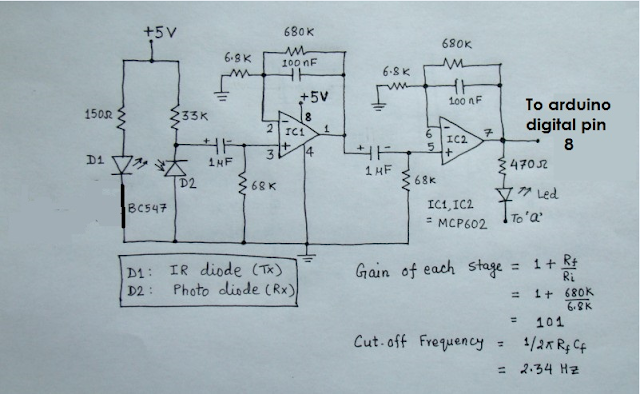 +5V
680K
100nF
6.8K
+5V
8
150Ω
33K
2
IC1
1
3
4
+
-
1µF
68K
D1
D2
BC547
680K
6.8K
100nF
6
IC2
7
5
+
-
1µF
68K
To arduino
digital pin
8
470Ω
Led
To 'a'
IC1, IC2
= MCP602
D1: IR diode (Tx)
D2: Photo diode (Rx)
Gain of each stage = 1 + Rf/Ri
= 1 + 680K/6.8K
= 101
Cut-off Frequency = 1/2πRfCf
= 2.34 Hz